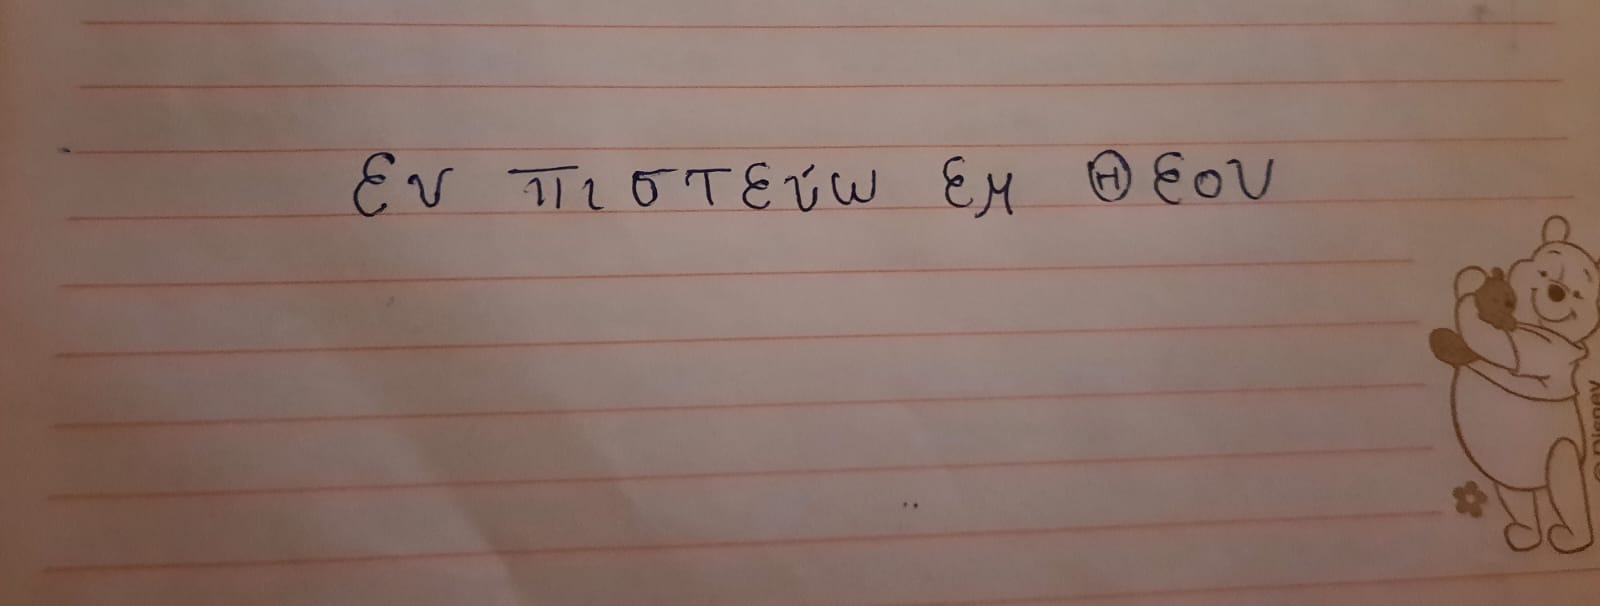 εν πιστεύω εμ Θεου
© Disney